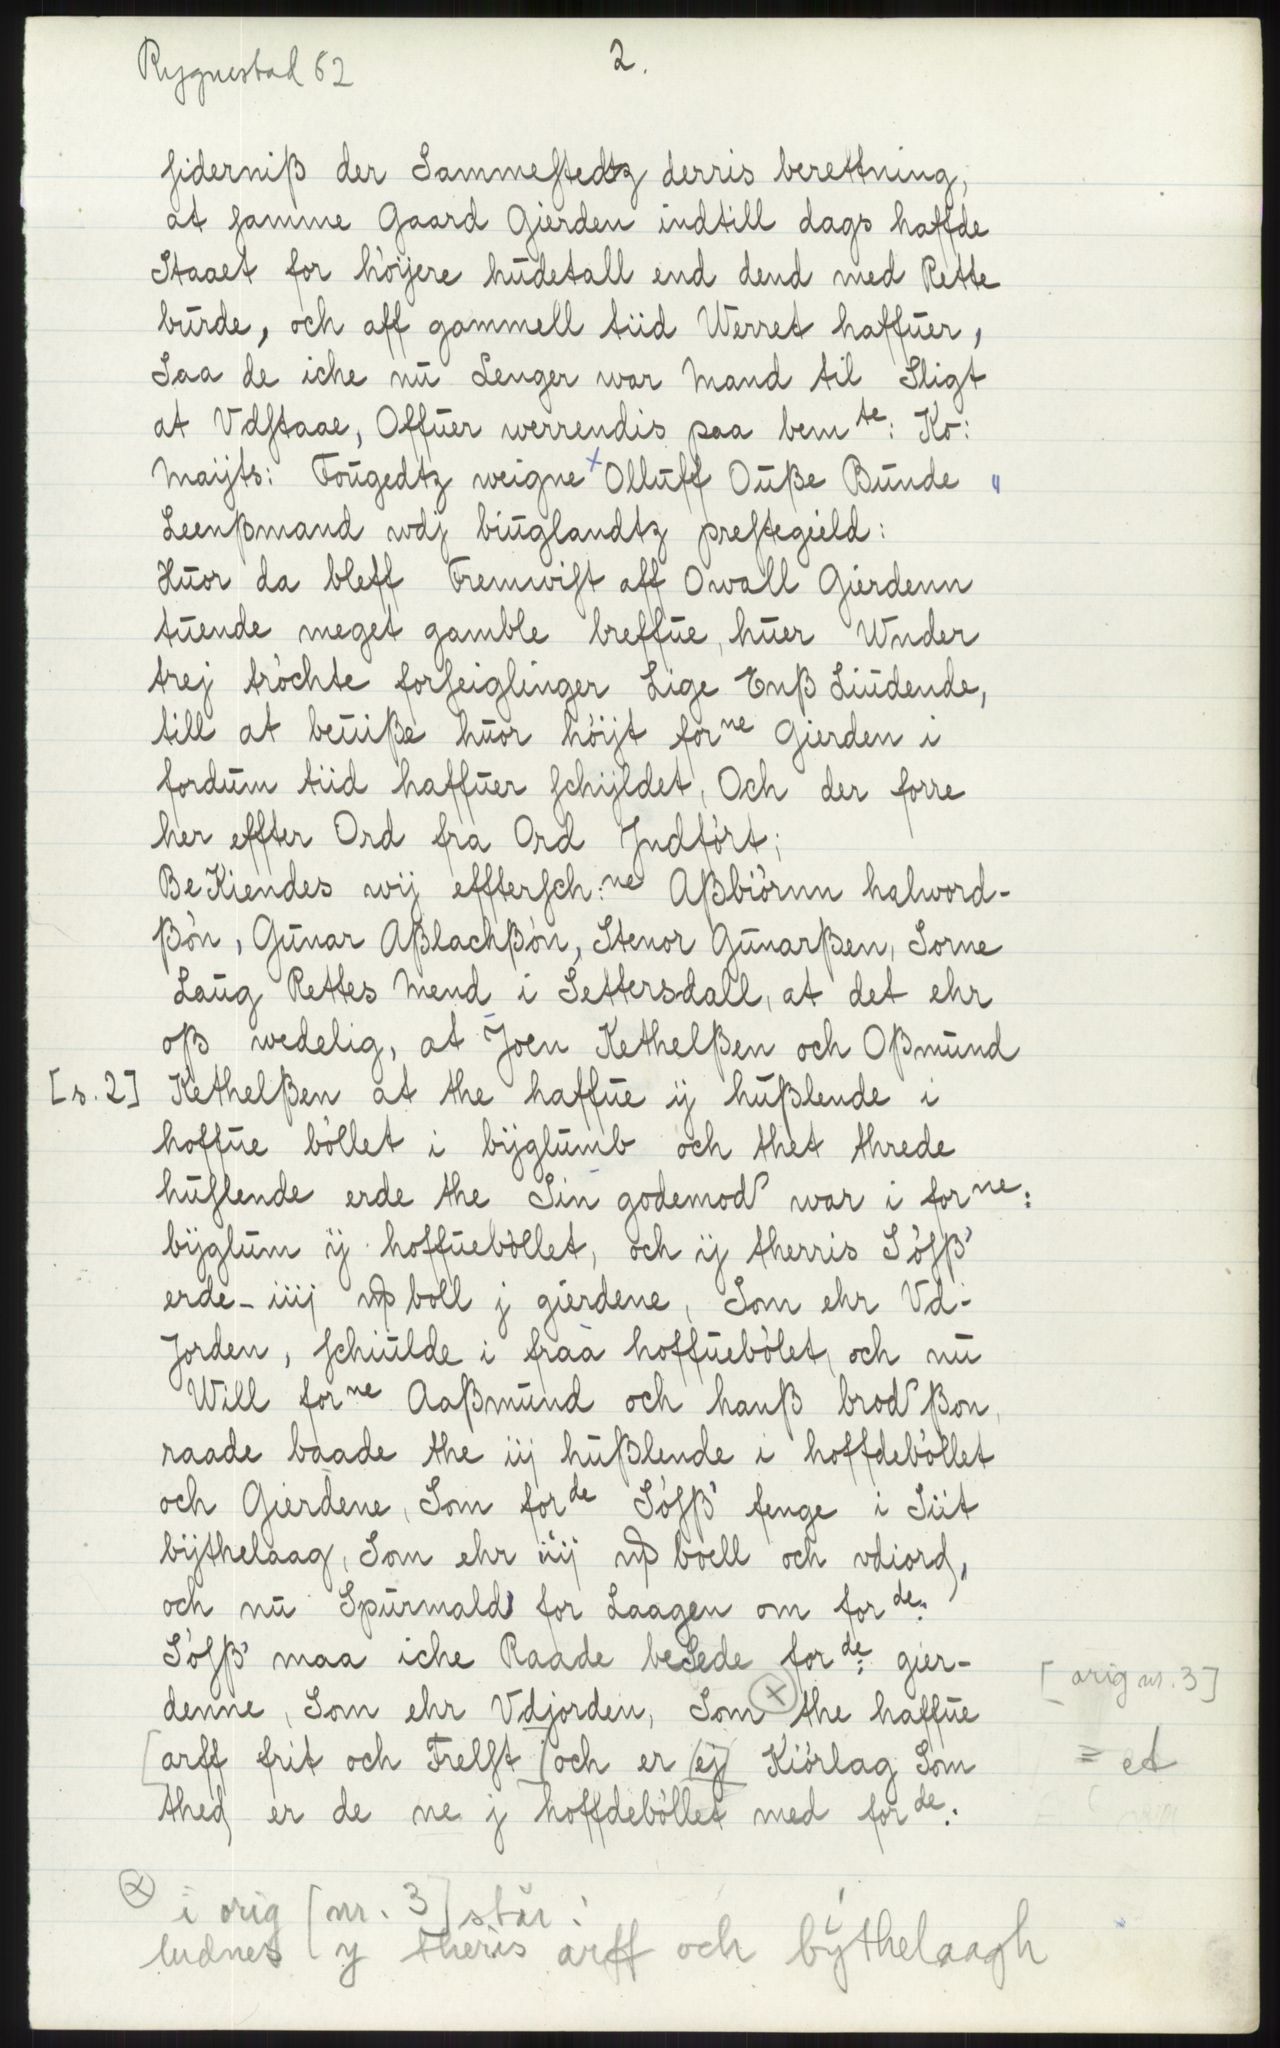 Rygnestad 62
2.
siderniß der Sammestedtz derris berettning,
at samme Gaard Gierden indtill dags haffde
Staaet for höijere hudetall end dend med Rette
burde, och aff gammell tiid Werret haffuer,
Saa de iche nu Lenger war Mand til Sligt
at Vdstaae, Offuer werrendis paa bemte: Ko:
Maijts: Fougedtz weigne x Olluff Ouße Bunde "
Leenßmand wdj biuglandtz prestegield:
Huor da bleff Fremwist aff Owall Gierdenn
tuende meget gamble breffue, huer Wnder
trej tröchte forseiglinger Lige Enß Liudende,
till at beuiße huor höijt forne Gierden i
fordum tiid haffuer schijldet, Och der forre
her effter Ord fra Ord Jndfört;
BeKiendes wij efftersch:ne Aßbiörnn halword-
ßön, Gunar AßlachßÖn, Stenor Gunarßen, Sorne
Laug Rettes Mend i Settersdall, at det ehr
oß wedelig, at Joen Kethelßen och Oßmund
[s. 2] Kethelßen at the haffue ij hußlende i
hoffueböllet i bijglumb och thet threde
huslende erde the Sin godemod war i forne:
bijglum ij hoffueböllet, och ij therris Sösß
erde - iiij boll j gierdene, Som ehr Vd-
Jorden, schiulde i fraa hoffuebölet, och nu
Will forne Aaßmund och hanß brod ßon,
raade baade the iij hußlende i hoffdeböllet
och Gierdene, Som forde Sösß fenge i Siit
bijthelaag, Som ehr iiij boell och vdiord,
och nu Spurmald for Laagen om forde:
Sösß maa iche Raade besede forde: gier-
denne, Som ehr Vdjorden, Som x the haffue
[orig nr. 3]
[arff frit och Frelst [och er [ej] Kiörlag Som
= et
thed er de ne j hoffdeböllet med forde:
x i orig [nr. 3] står:
ludnes y theris arff och bythelaagh